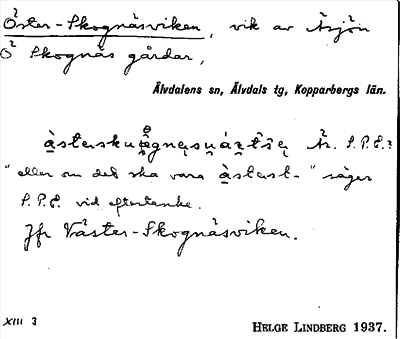 Öster-Skognäsviken, vik av Åsjön
Ö Skognäs gårdar,
Älvdalens sn, Älvdals tg, Kopparbergs län.
Ås. S.P.E.:
"eller om det ska vara åstast-" säger
S.P.E. vid eftertanke.
Jfr Väster-Skognäsviken.
XIII 3
HELGE LINDBERG 1937.